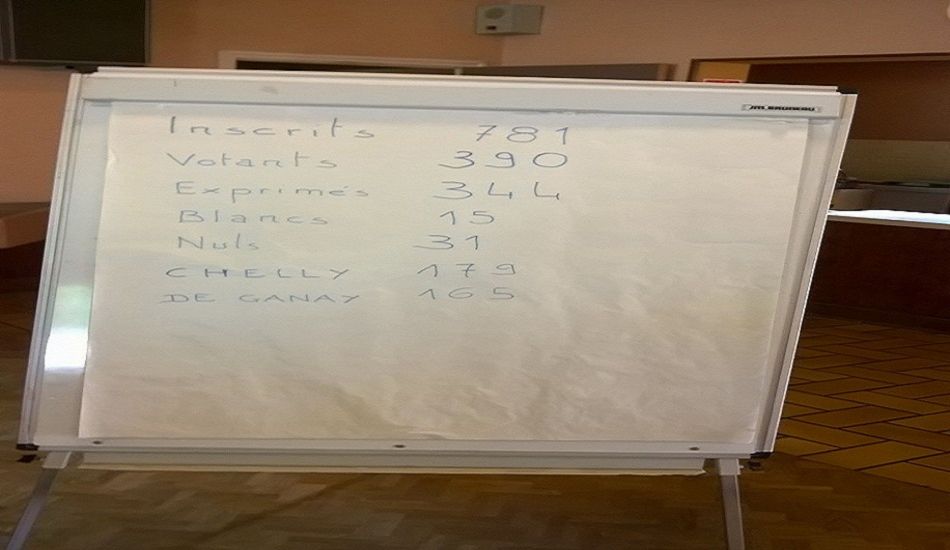 JM.BRUNEAU
Inscrits 781
Votants 390
Exprimés 344
Blancs 15
Nuls 31
CHELLY 179
DE GANAY 165